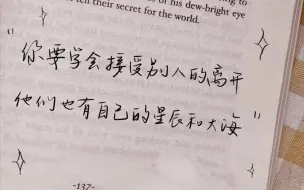 tell their secret for the world.
of his dew-bright eye
"你要学会接受别人的离开
他们也有自己的星辰和大海"
-137-